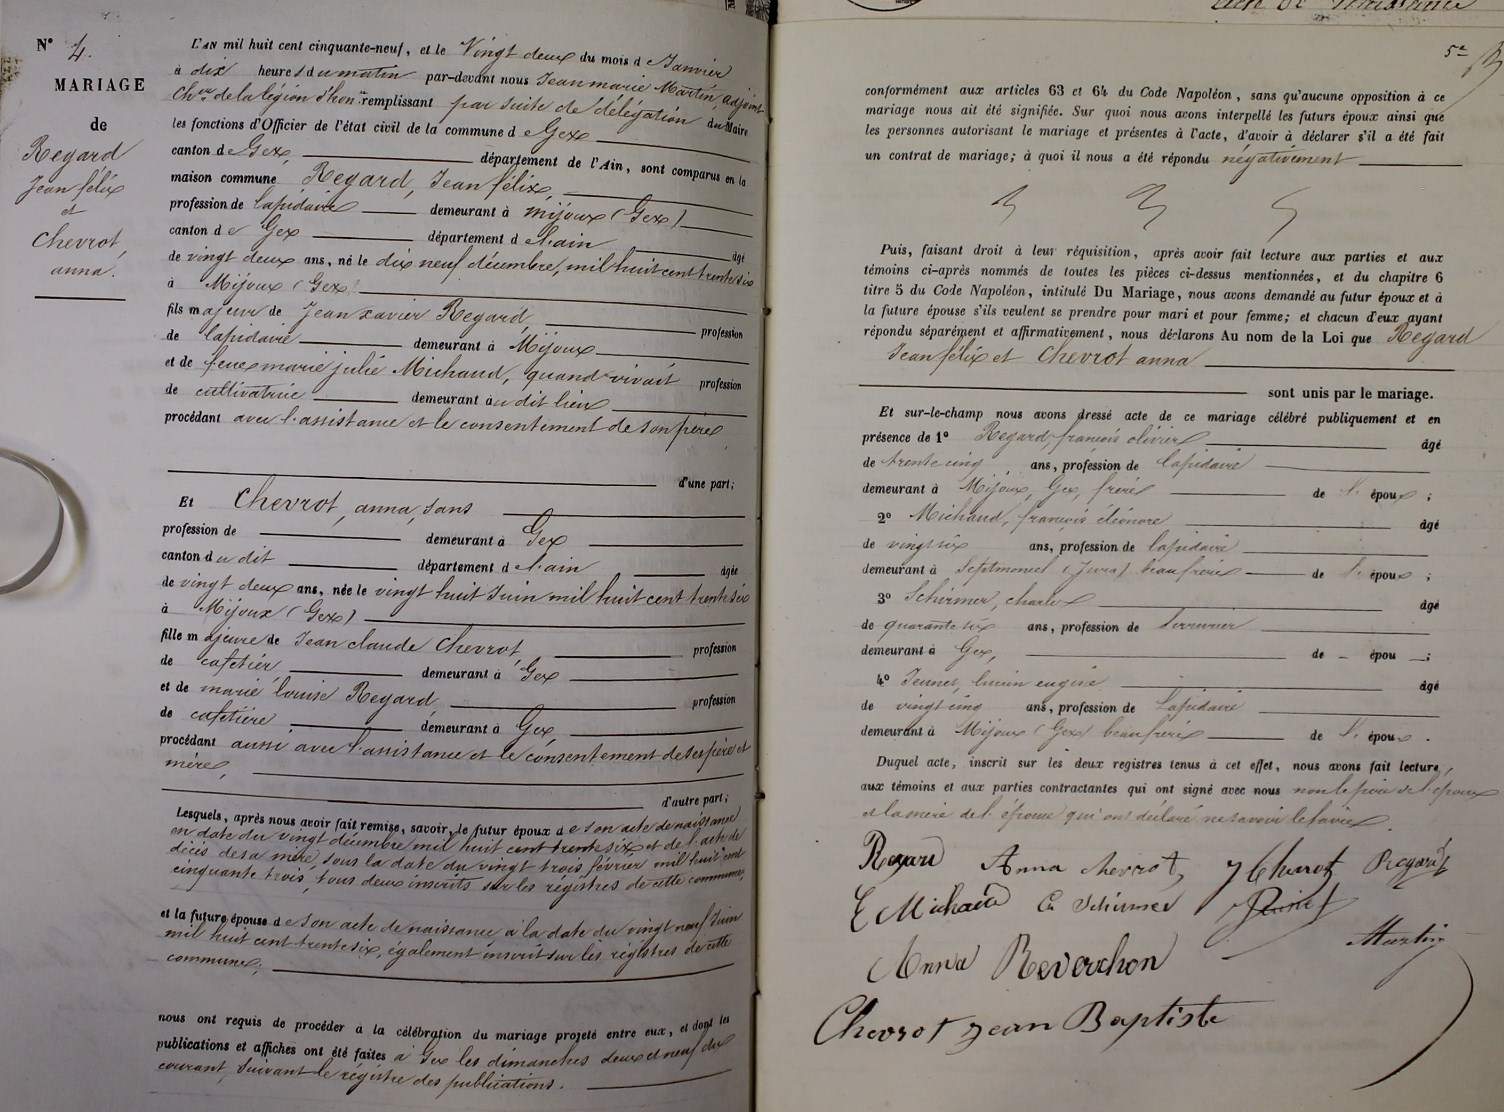 N° 4.
MARIAGE
de
Regard
Jean félix
et
Chevrot,
anna.
L'AN mil huit cent cinquante-neuf, et le Vingt deux du mois de Janvier
à dix heures du matin par-devant nous Jean marie Martin, adjoint
Cher de la légion d'hon.r remplissant par suite de délégation du Maire
les fonctions d'Officier de l'état civil de la commune de Gex
canton de Gex, département de l'Ain, sont comparus en la
maison commune Regard, Jean félix,
profession de lapidaire demeurant à mijoux (Gex)
canton de Gex département de l'ain âgé
de vingt deux ans, né le dix neuf décembre, mil huit cent trente six
à Mijoux (Gex)
fils majeur de Jean xavier Regard profession
de lapidaire demeurant à Mijoux
et de feue marie julie Michaud, quand vivait profession
de cultivatrice demeurant au dit lieu
procédant avec l'assistance et le consentement de son père
d'une part;
Et Chevrot, anna, sans
profession de demeurant à Gex
canton du dit département de l'ain âgée
de vingt deux ans, née le vingt huit Juin mil huit cent trente six
à Mijoux (Gex)
fille majeure de Jean claude Chevrot profession
de cafetier demeurant à Gex
et de marie louise Regard profession
de cafetière demeurant à Gex
procédant aussi avec l'assistance et le consentement de ses père et
mère,
d'autre part;
Lesquels, après nous avoir fait remise, savoir, le futur époux de son acte de naissance
en date du vingt décembre mil huit cent trente six et de l'acte de
décès de sa mère, sous la date du vingt trois février mil huit cent
cinquante trois, tous deux inscrits sur les régistres de cette commune,
et la future épouse de son acte de naissance à la date du vingt neuf Juin
mil huit cent trente six, également inscrit sur les régistres de cette
commune,
nous ont requis de procéder à la célébration du mariage projeté entre eux, et dont les
publications et affiches ont été faites à Gex les dimanches deux et neuf du
courant, suivant le régistre des publications.
acte de Naissance
5e
conformément aux articles 63 et 64 du Code Napoléon, sans qu'aucune opposition à ce
mariage nous ait été signifiée. Sur quoi nous avons interpellé les futurs époux ainsi que
les personnes autorisant le mariage et présentes à l'acte, d'avoir à déclarer s'il a été fait
un contrat de mariage; à quoi il nous a été répondu négativement
Puis, faisant droit à leur réquisition, après avoir fait lecture aux parties et aux
témoins ci-après nommés de toutes les pièces ci-dessus mentionnées, et du chapitre 6
titre 5 du Code Napoléon, intitulé Du Mariage, nous avons demandé au futur époux et à
la future épouse s'ils veulent se prendre pour mari et pour femme; et chacun d'eux ayant
répondu séparément et affirmativement, nous déclarons Au nom de la Loi que Regard
Jean félix et Chevrot anna
sont unis par le mariage.
Et sur-le-champ nous avons dressé acte de ce mariage célébré publiquement et en
présence de 1° Regard, françois olivier âgé
de trente cinq ans, profession de lapidaire
demeurant à Mijoux, Gex, frère de l' époux ;
2° Michaud, françois éléonore âgé
de vingt six ans, profession de lapidaire
demeurant à Septmoncel (Jura) beau frère de l' époux ;
3° Schirmer, charles âgé
de quarante six ans, profession de serrurier
demeurant à Gex, de – épou – ;
4° Jeunet, lucien eugène âgé
de vingt cinq ans, profession de Lapidaire
demeurant à Mijoux (Gex) beau frère de l' époux .
Duquel acte, inscrit sur les deux registres tenus à cet effet, nous avons fait lecture
aux témoins et aux parties contractantes qui ont signé avec nous non le père de l'époux
et la mère de l'épouse qui ont déclaré ne savoir le faire.
Regard Anna chevrot J Chevrot Regard
E Michaud Ch Schirmer Jeunet
Martin
Anna Reverchon
Chevrot Jean Baptiste